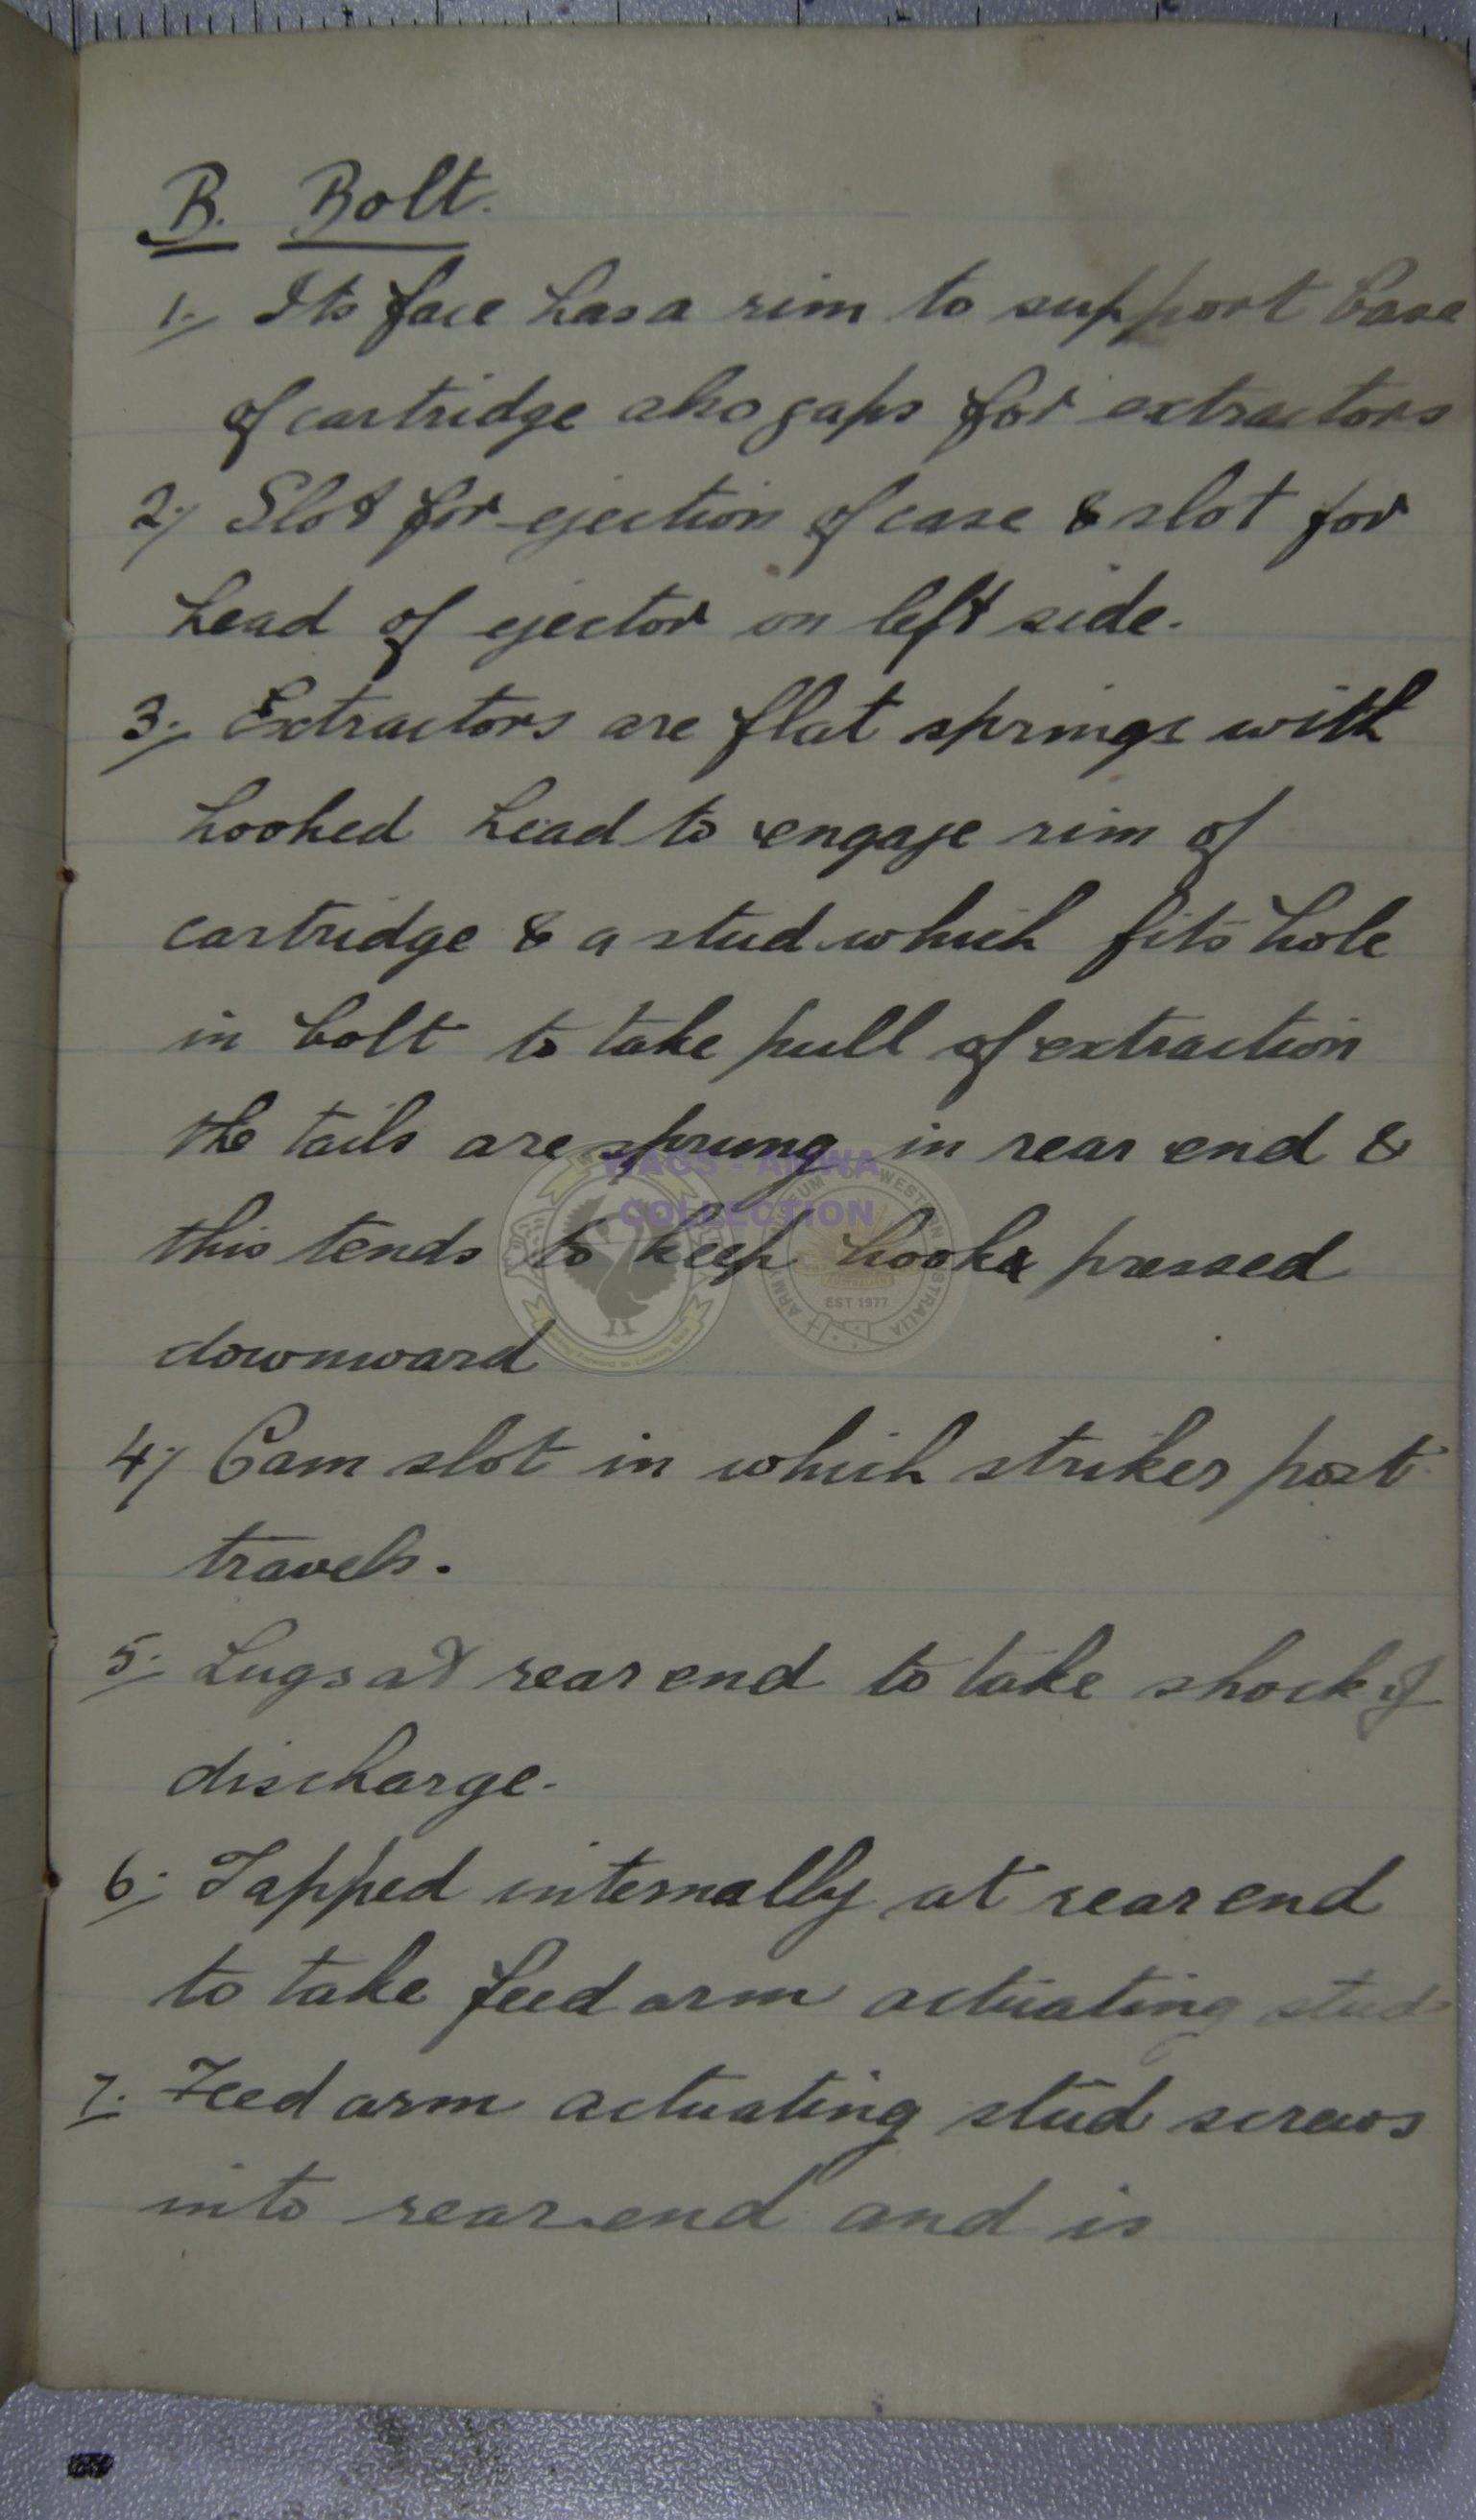 B. Bolt.
1. Its face has a rim to support base
of cartridge also gaps for extractors
2. Slot for ejection of case & slot for
head of ejector on left side.
3. Extractors are flat springs with
hooked head to engage rim of
cartridge & a stud which fits hole
in bolt to take pull of extraction
the tails are sprung in rear end &
this tends to keep hooks pressed
downward
4. Cam slot in which striker post
travels.
5. Lugs at rear end to take shock of
discharge.
6. Tapped internally at rear end
to take feed arm actuating stud
7. Feed arm actuating stud screws
into rear end and is
WAGS - AMWA
COLLECTION
MUSEUM OF WESTERN AUSTRALIA
ARMY
EST 1977